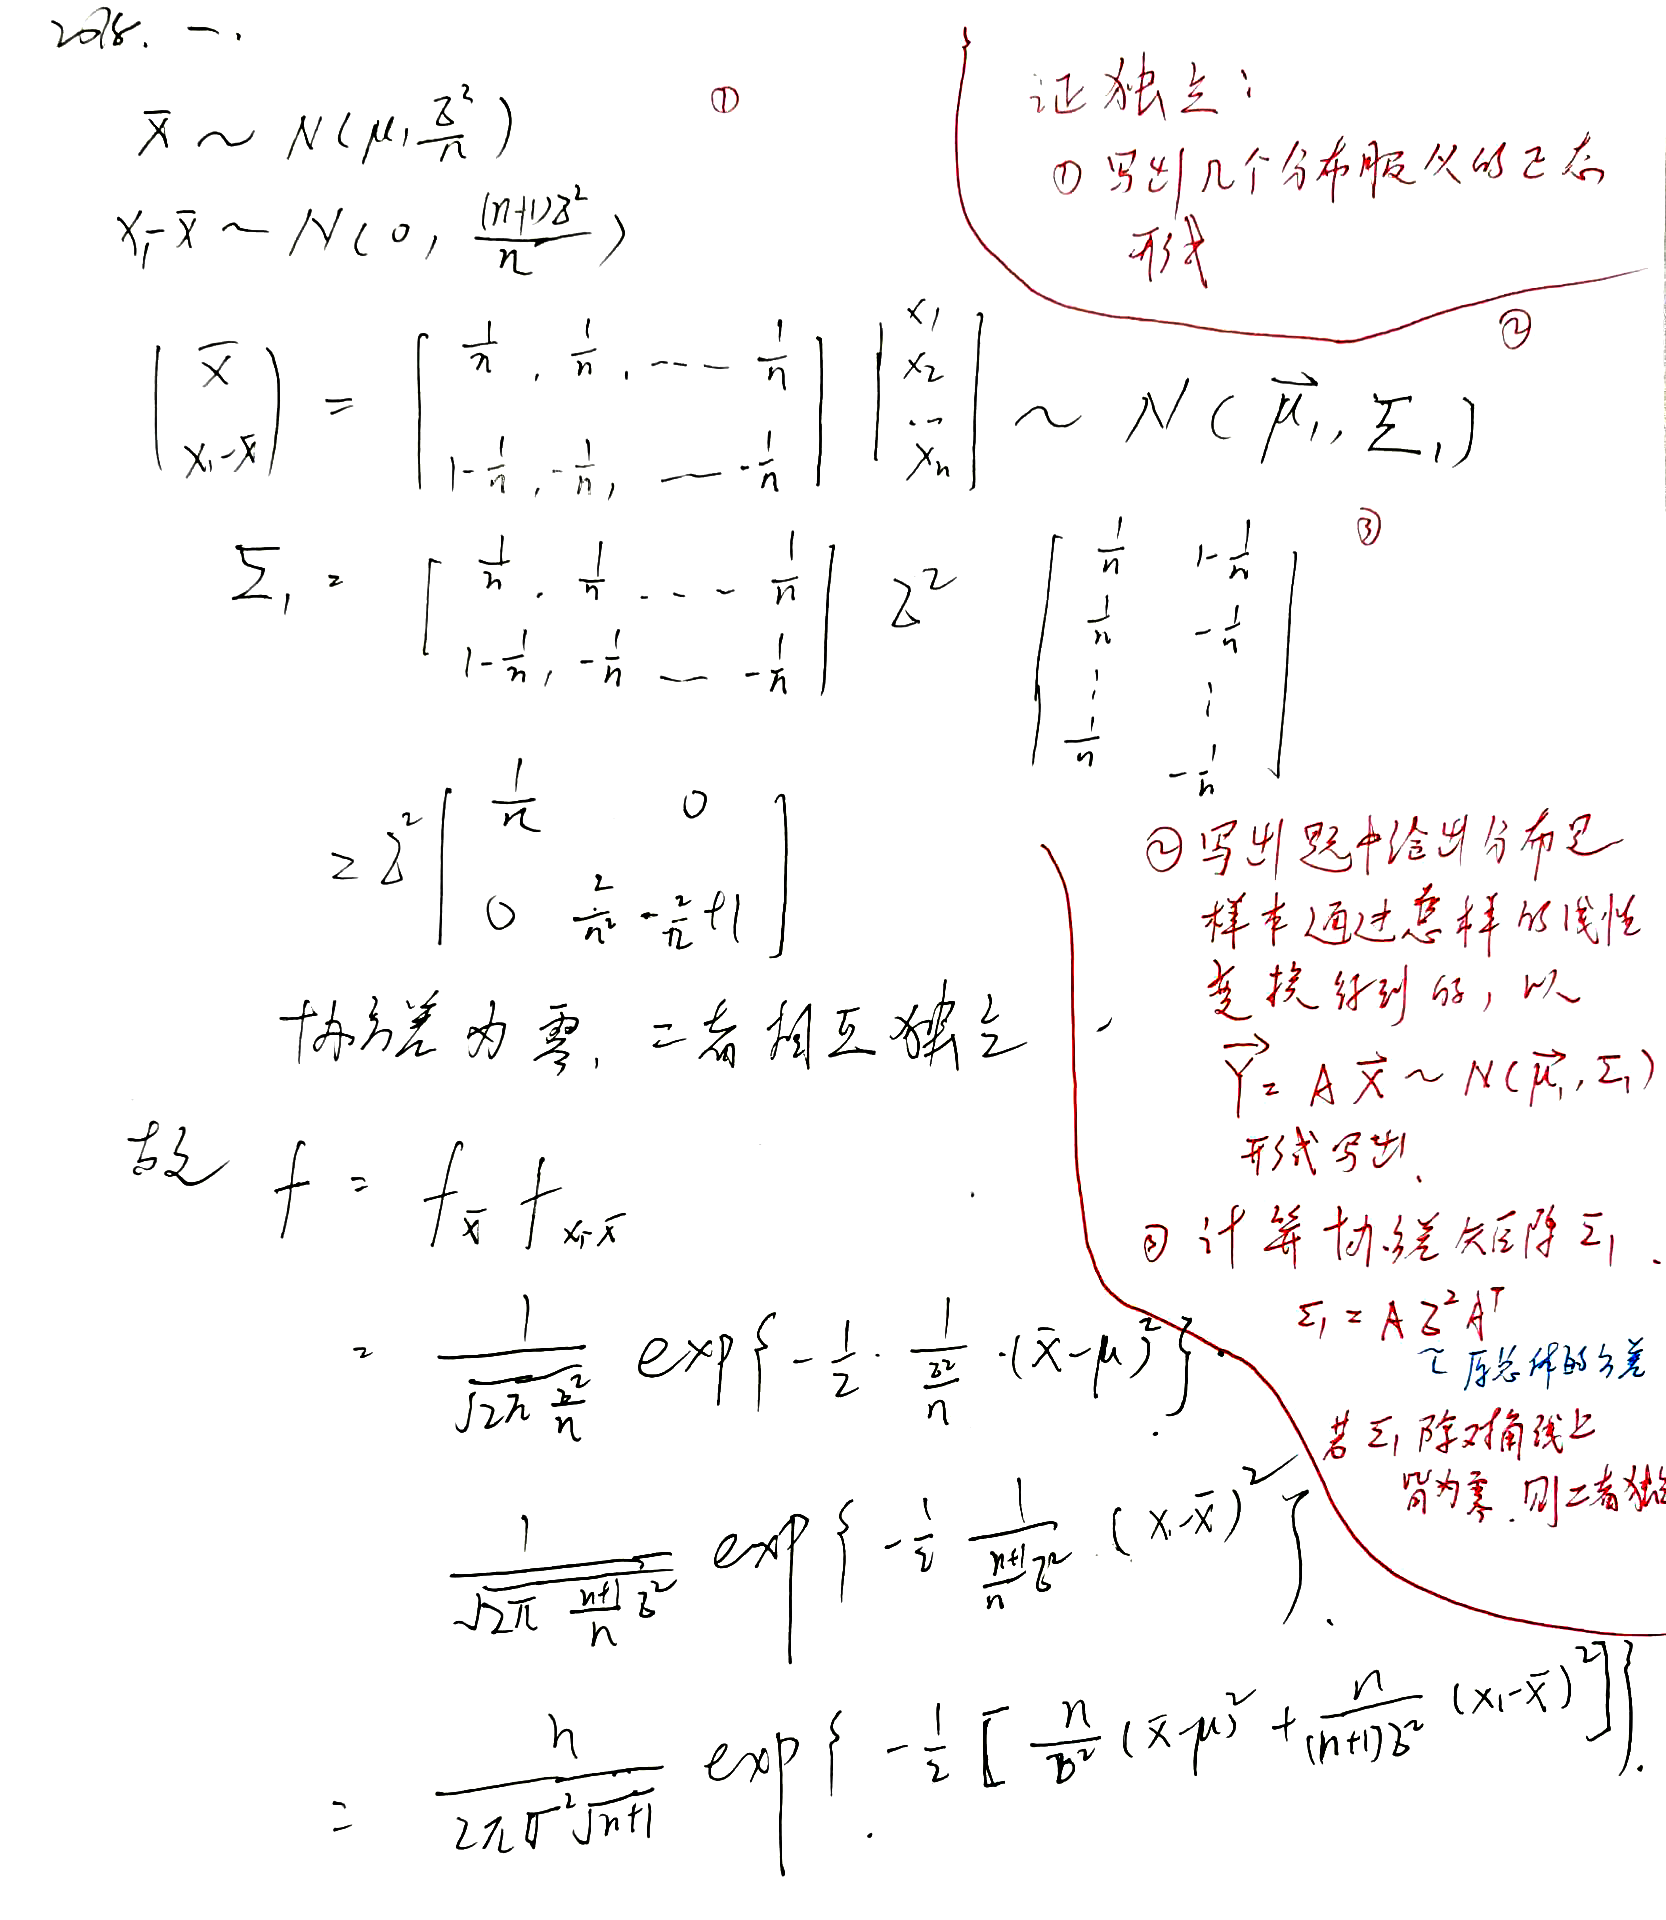 2018. 一.
①
x̄ ~ N(μ, σ²/n)
x₁-x̄ ~ N(0, (n+1)σ²/n)
证独立：
① 写出几个分布服从的正态
形式
②
(x̄ ; x₁-x̄) = [1/n, 1/n, ... 1/n ; 1-1/n, -1/n, ... -1/n] [x₁ ; x₂ ; ... ; xₙ] ~ N(μ⃗₁, Σ₁)
③
Σ₁ = [1/n, 1/n, ... 1/n ; 1-1/n, -1/n ... -1/n] σ² [1/n 1-1/n ; 1/n -1/n ; ⋮ ⋮ ; 1/n -1/n]
= σ² [1/n 0 ; 0 2/n² - 2/n + 1]
协方差为零, 二者相互独立
② 写出题中给出分布是
样本通过怎样的线性
变换得到的, 以
Y⃗ = A X⃗ ~ N(μ⃗₁, Σ₁)
形式写出.
③ 计算协方差矩阵 Σ₁.
Σ₁ = A σ² Aᵀ
~ 原总体的方差
若 Σ₁ 除对角线上
皆为零. 则二者独立
故 f = f_x̄ f_x₁-x̄
= 1/√(2π σ²/n) exp{ -1/2 · 1/(σ²/n) · (x̄-μ)² } ·
1/√(2π (n+1)/n σ²) exp{ -1/2 1/((n+1)/n σ²) (x₁-x̄)² }.
= n/(2πσ²√(n+1)) exp{ -1/2 [ n/σ² (x̄-μ)² + n/((n+1)σ²) (x₁-x̄)² ] }.